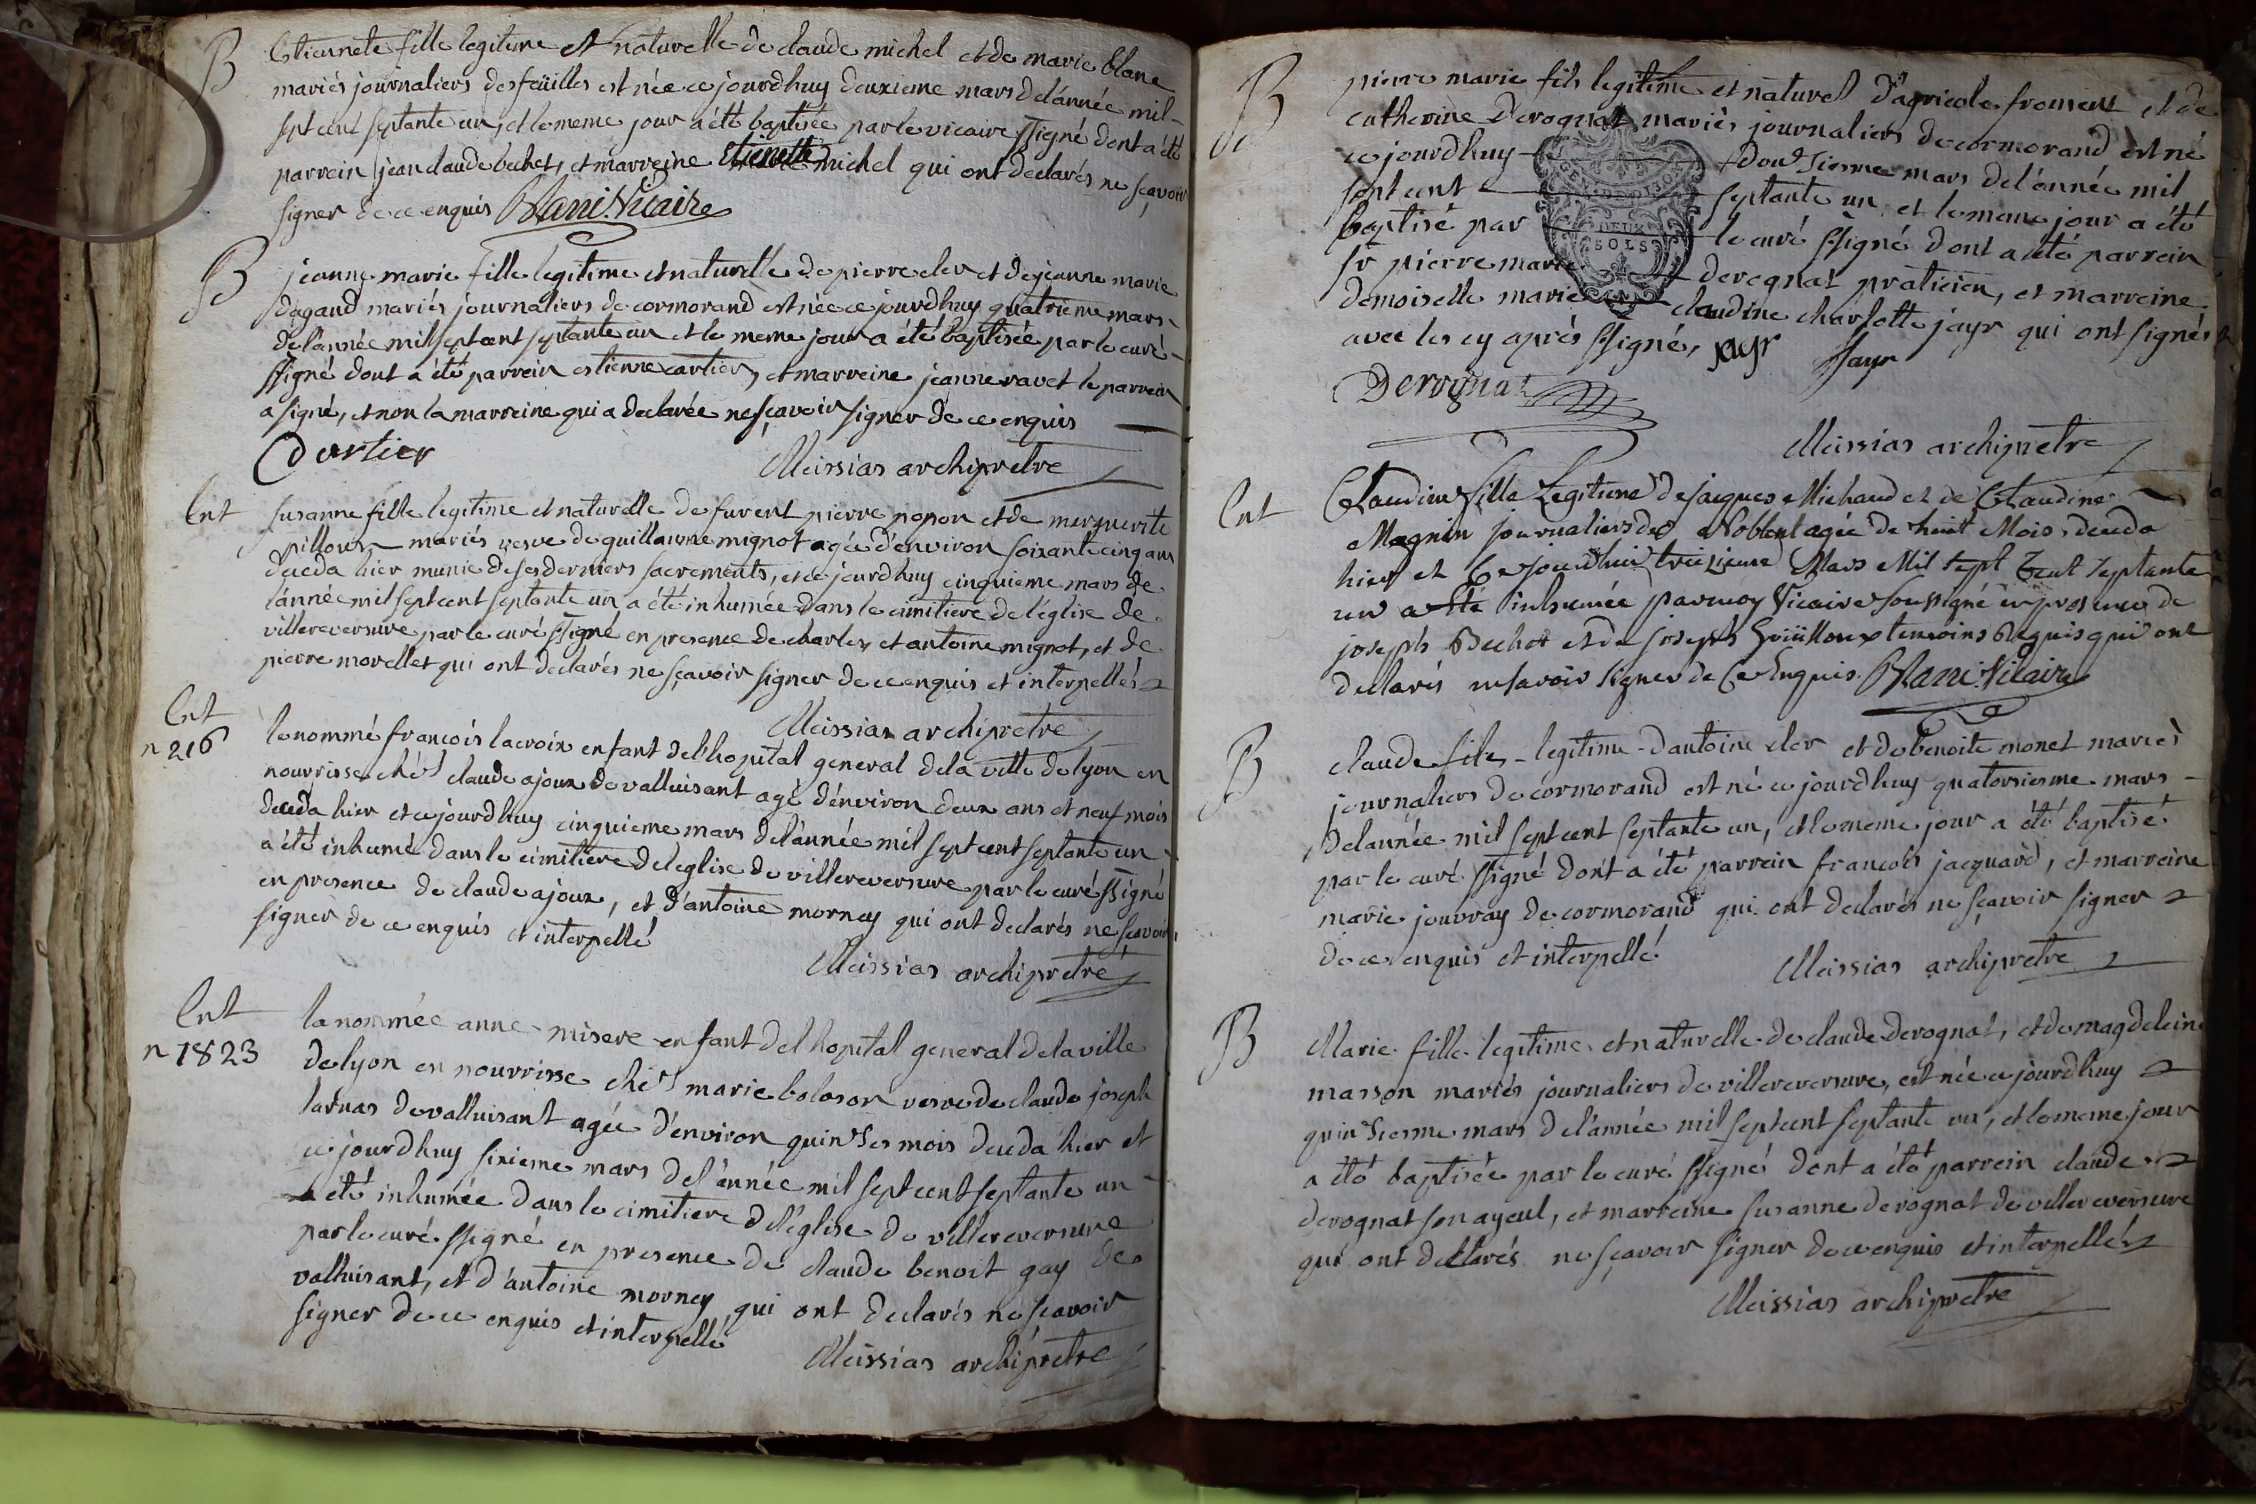 B
Etiennete fille legitime et naturelle de claude michel et de marie blanc
mariés journaliers des feüilles est née ce jourdhuy deuxieme mars de l'année mil
sept cent septante un, et le meme jour a été baptisée par le vicaire ssigné dont a été
parrein jean claude bechet, et marreine etienette michel qui ont declarés ne sçavoir
signer de ce enquis Blanc Vicaire
B
jeanne marie fille legitime et naturelle de pierre cler et de jeanne marie
dagaud mariés journaliers de cormorand est née ce jourdhuy quatrieme mars
de l'année mil sept cent septante un et le meme jour a été baptisée par le curé
ssigné dont a été parrein estienne cartier, et marreine jeanne ravet le parrein
a signé, et non la marreine qui a declarée ne sçavoir signer de ce enquis
Cartier
Meissias archipretre
Ent
susanne fille legitime et naturelle de furent pierre popon et de marguerite
pilloux mariés vesve de guillaume mignot agée d'environ soixante cinq ans
deceda hier munie de ses derniers sacrements, et ce jourdhuy cinquieme mars de
l'année mil sept cent septante un a été inhumée dans le cimitiere de l'eglise de
villereversure par le curé ssigné en presence de charles, et antoine mignot, et de
pierre morellet qui ont declarés ne sçavoir signer de ce enquis et interpellés
Meissias archipretre
Ent
n 216
le nommé francois lacroix enfant de l'hopital general de la ville de lyon en
nourrisse chés claude ajoux de valluisant agé d'environ deux ans et neuf mois
deceda hier et ce jourdhuy cinquieme mars de l'année mil sept cent septante un
a été inhumé dans le cimitiere de l'eglise de villereversure par le curé ssigné
en presence de claude ajoux, et d'antoine mornay qui ont declarés ne scavoir
signer de ce enquis et interpellé
Meissias archipretre
Ent
n 1823
la nommée anne misere enfant de l hopital general de la ville
de lyon en nourrisse chés marie boloson vesve de claude joseph
larnas de valluisant agée d'environ quinses mois deceda hier et
ce jourdhuy sixieme mars de l'année mil sept cent septante un
a été inhumée dans le cimitiere de l'eglise de villereversure
par le curé ssigné en presence de claude benoit gay de
valluisant, et d'antoine mornay qui ont declarés ne scavoir
signer de ce enquis et interpellé
Meissias archipretre
B
pierre marie fils legitime et naturel d'agricole froment et de
catherine derognat mariés journaliers de cormorand est né
ce jourdhuy dousieme mars de l'année mil
sept cent septante un et le meme jour a été
baptisé par le curé ssigné dont a été parrein
sr pierre marie derognat praticien, et marreine
demoiselle marie claudine charlotte jayr qui ont signés
avec les cy après ssigné, jayr Jayr
DEUX
SOLS
Derognat
Meissias archipretre
Ent
Claudine fille Legitime de jacques Michaud et de Claudine
Magnin journaliers de Noblent agée de huit Mois, deceda
hier et Ce jourdhui treizieme Mars Mil sept Cent septante
un a été inhumée par moy Vicaire soussigné en presence de
joseph Bechet et de joseph Guilloux temoins Requis qui ont
declarés ne savoir signer de Ce Enquis. Blanc Vicaire
B
claude fils legitime d'antoine cler et de benoite monet mariés
journaliers de cormorand est né ce jourdhuy quatorsiesme mars
de l'année mil sept cent septante un, et le meme jour a été baptisé
par le curé ssigné dont a été parrein francois jacquard, et marreine
marie jouvray de cormorand qui ont declarés ne sçavoir signer
de ce enquis et interpellé
Meissias archipretre
B
Marie fille legitime et naturelle de claude derognat, et de magdeleine
masson mariés journaliers de villereversure, est née ce jourdhuy
quinsiesme mars de l'année mil sept cent septante un, et le meme jour
a été baptisée par le curé ssigné dont a été parrein claude
derognat son ayeul, et marreine susanne derognat de villereversure
qui ont declarés ne sçavoir signer de ce enquis et interpellés
Meissias archipretre